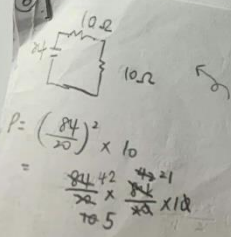 10Ω
84
10Ω
P = (84/20)² × 10
= 84/20 × 84/20 × 10
42 42 21
10 5